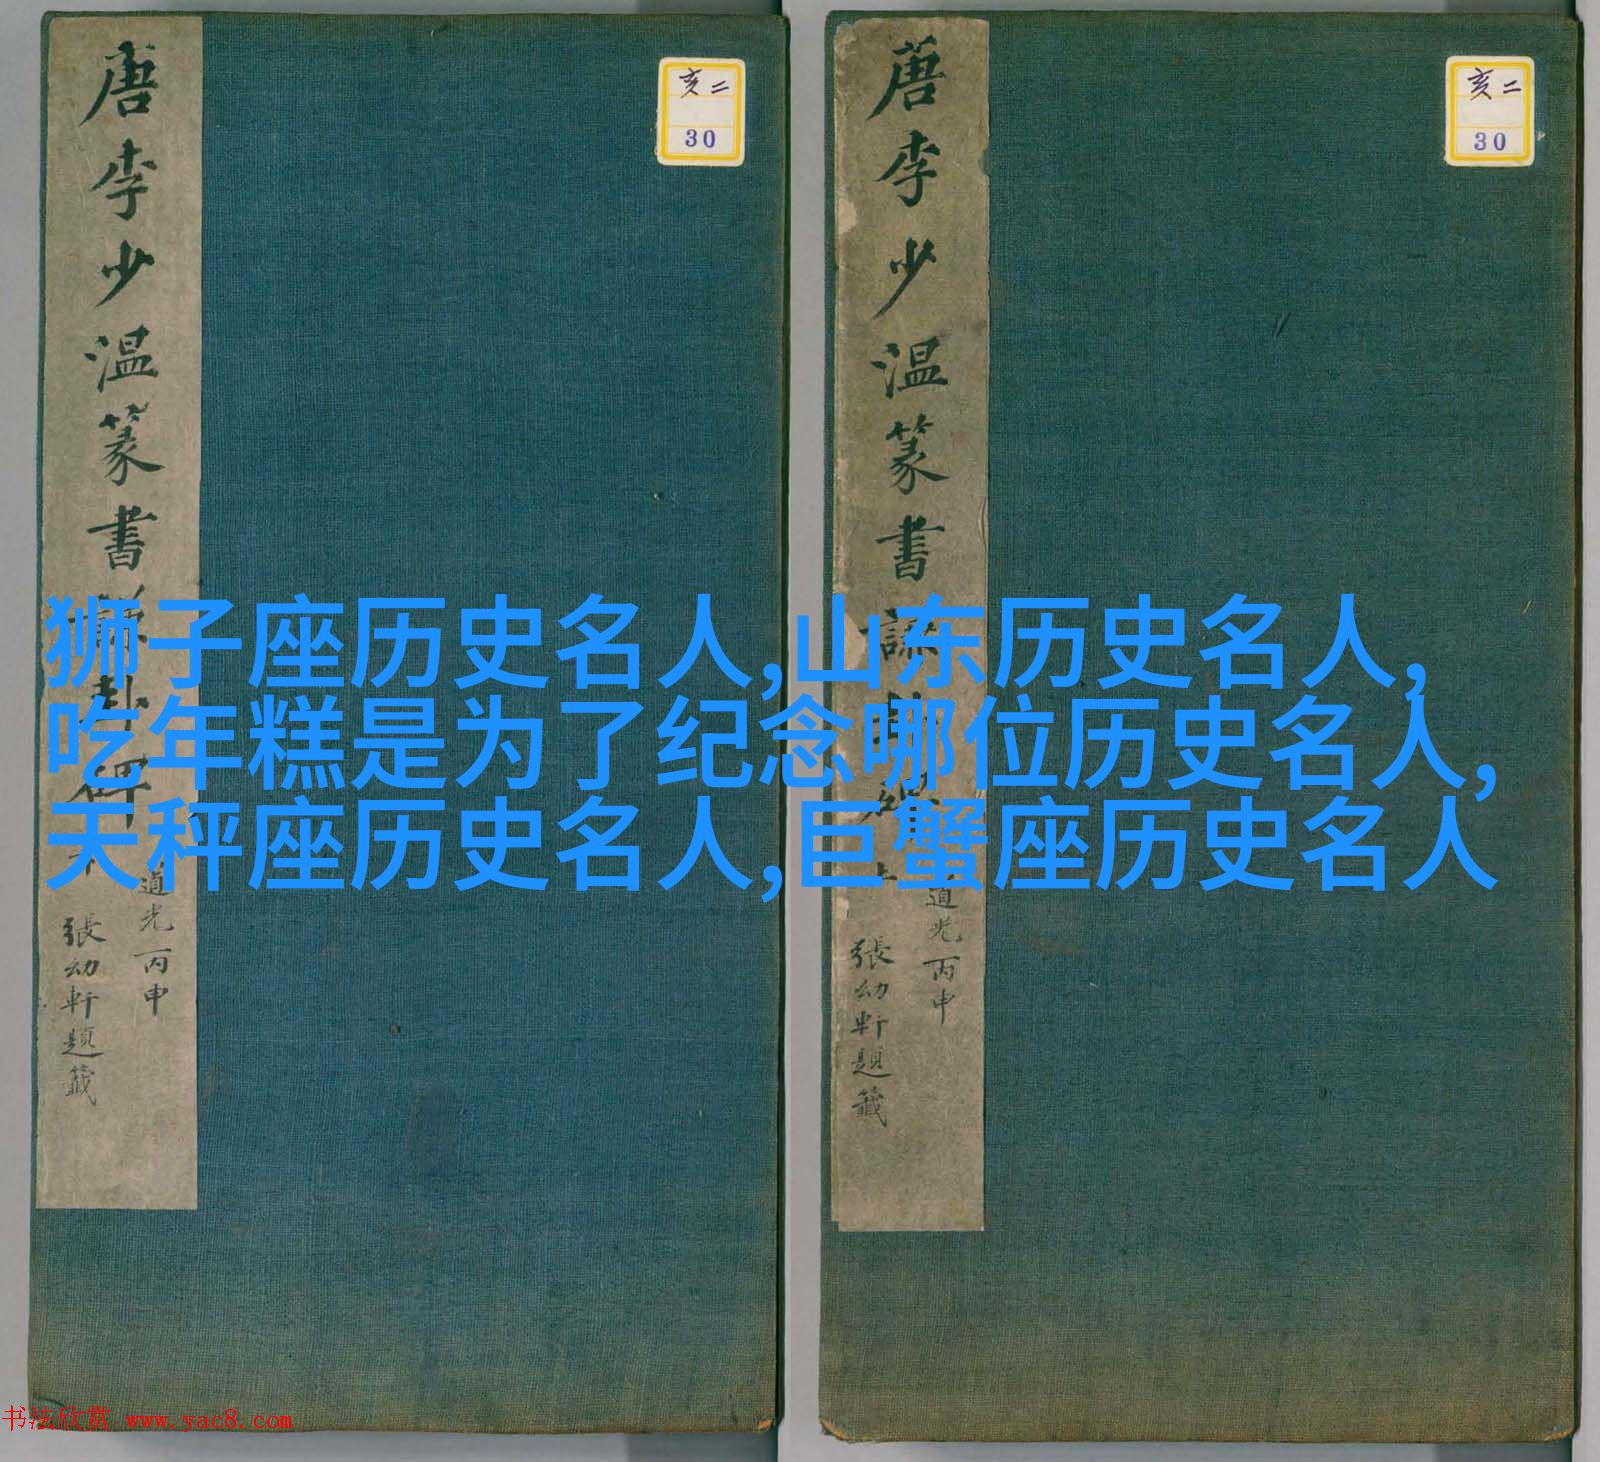 唐李少温篆書謙卦碑
道光丙申
張幼軒題籤
亥二
30
唐李少温篆書謙卦碑
道光丙申
張幼軒題籤
亥二
30
狮子座历史名人,山东历史名人,
吃年糕是为了纪念哪位历史名人,
天秤座历史名人,巨蟹座历史名人
书法欣赏 www.yac8.com